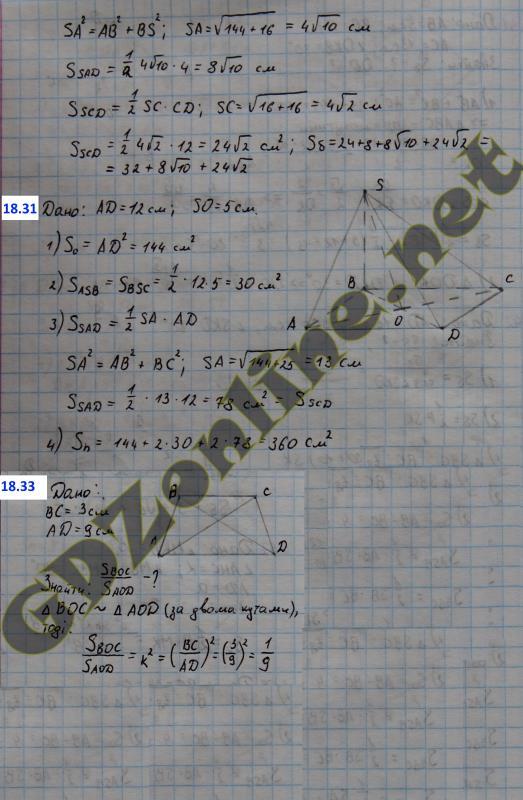 SA² = AB² + BS²; SA = √144+16 = 4√10 см
S_SAD = 1/2 4√10 · 4 = 8√10 см
S_SCD = 1/2 SC · CD; SC = √16+16 = 4√2 см
S_SCD = 1/2 4√2 · 12 = 24√2 см²; Sδ = 24+8+8√10+24√2 =
= 32 + 8√10 + 24√2
18.31 Дано: AD = 12 см; SO = 5 см.
1) S₀ = AD² = 144 см²
2) S_ASB = S_BSC = 1/2 · 12 · 5 = 30 см²
3) S_SAD = 1/2 SA · AD
SA² = AB² + BC²; SA = √144+25 = 13 см
S_SAD = 1/2 · 13 · 12 = 78 см² = S_SCD
4) Sп = 144 + 2 · 30 + 2 · 78 = 360 см²
S
B
C
A
O
D
18.33 Дано:
BC = 3 см
AD = 9 см
B
C
A
D
Знайти: S_BOC/S_AOD - ?
Δ BOC ~ Δ AOD (за двома кутами),
тоді:
S_BOC/S_AOD = k² = (BC/AD)² = (3/9)² = 1/9
GDZonline.net